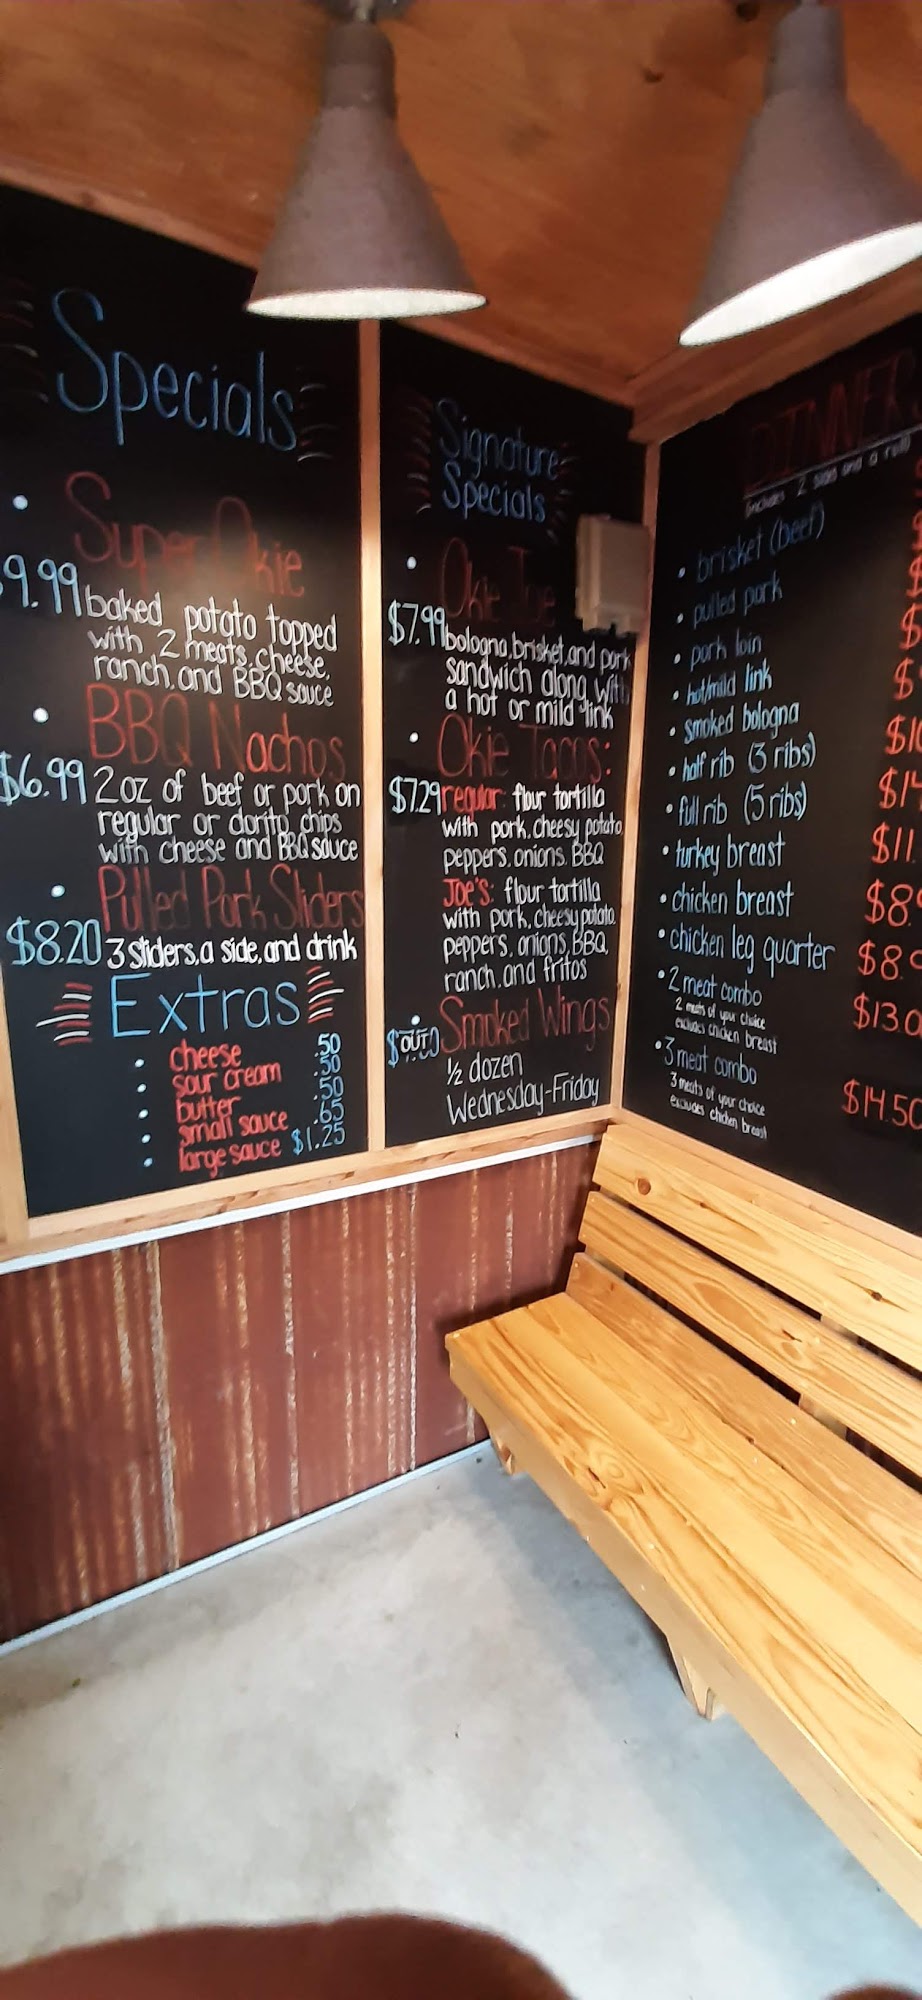 Specials
• Super Okie
9.99 baked potato topped
with 2 meats, cheese,
ranch, and BBQ sauce
• BBQ Nachos
$6.99 2 oz of beef or pork on
regular or dorito chips
with cheese and BBQ sauce
• Pulled Pork Sliders
$8.20 3 sliders, a side, and drink
Extras
• cheese .50
• sour cream .50
• butter .50
• small sauce .65
• large sauce $1.25
Signature
Specials
• Okie Joe
$7.99 bologna, brisket, and pork
sandwich along with
a hot or mild link
• Okie Tacos:
$7.29 regular: flour tortilla
with pork, cheesy potato,
peppers, onions, BBQ
Joe's: flour tortilla
with pork, cheesy potato,
peppers, onions, BBQ,
ranch, and fritos
• Smoked Wings
$ OUT
½ dozen
Wednesday-Friday
DINNER
Includes 2 sides and a roll
• brisket (beef)
• pulled pork
• pork loin
• hot/mild link
• smoked bologna
• half rib (3 ribs)
• full rib (5 ribs)
• turkey breast
• chicken breast
• chicken leg quarter
• 2 meat combo
2 meats of your choice
excludes chicken breast
• 3 meat combo
3 meats of your choice
excludes chicken breast
$14.50